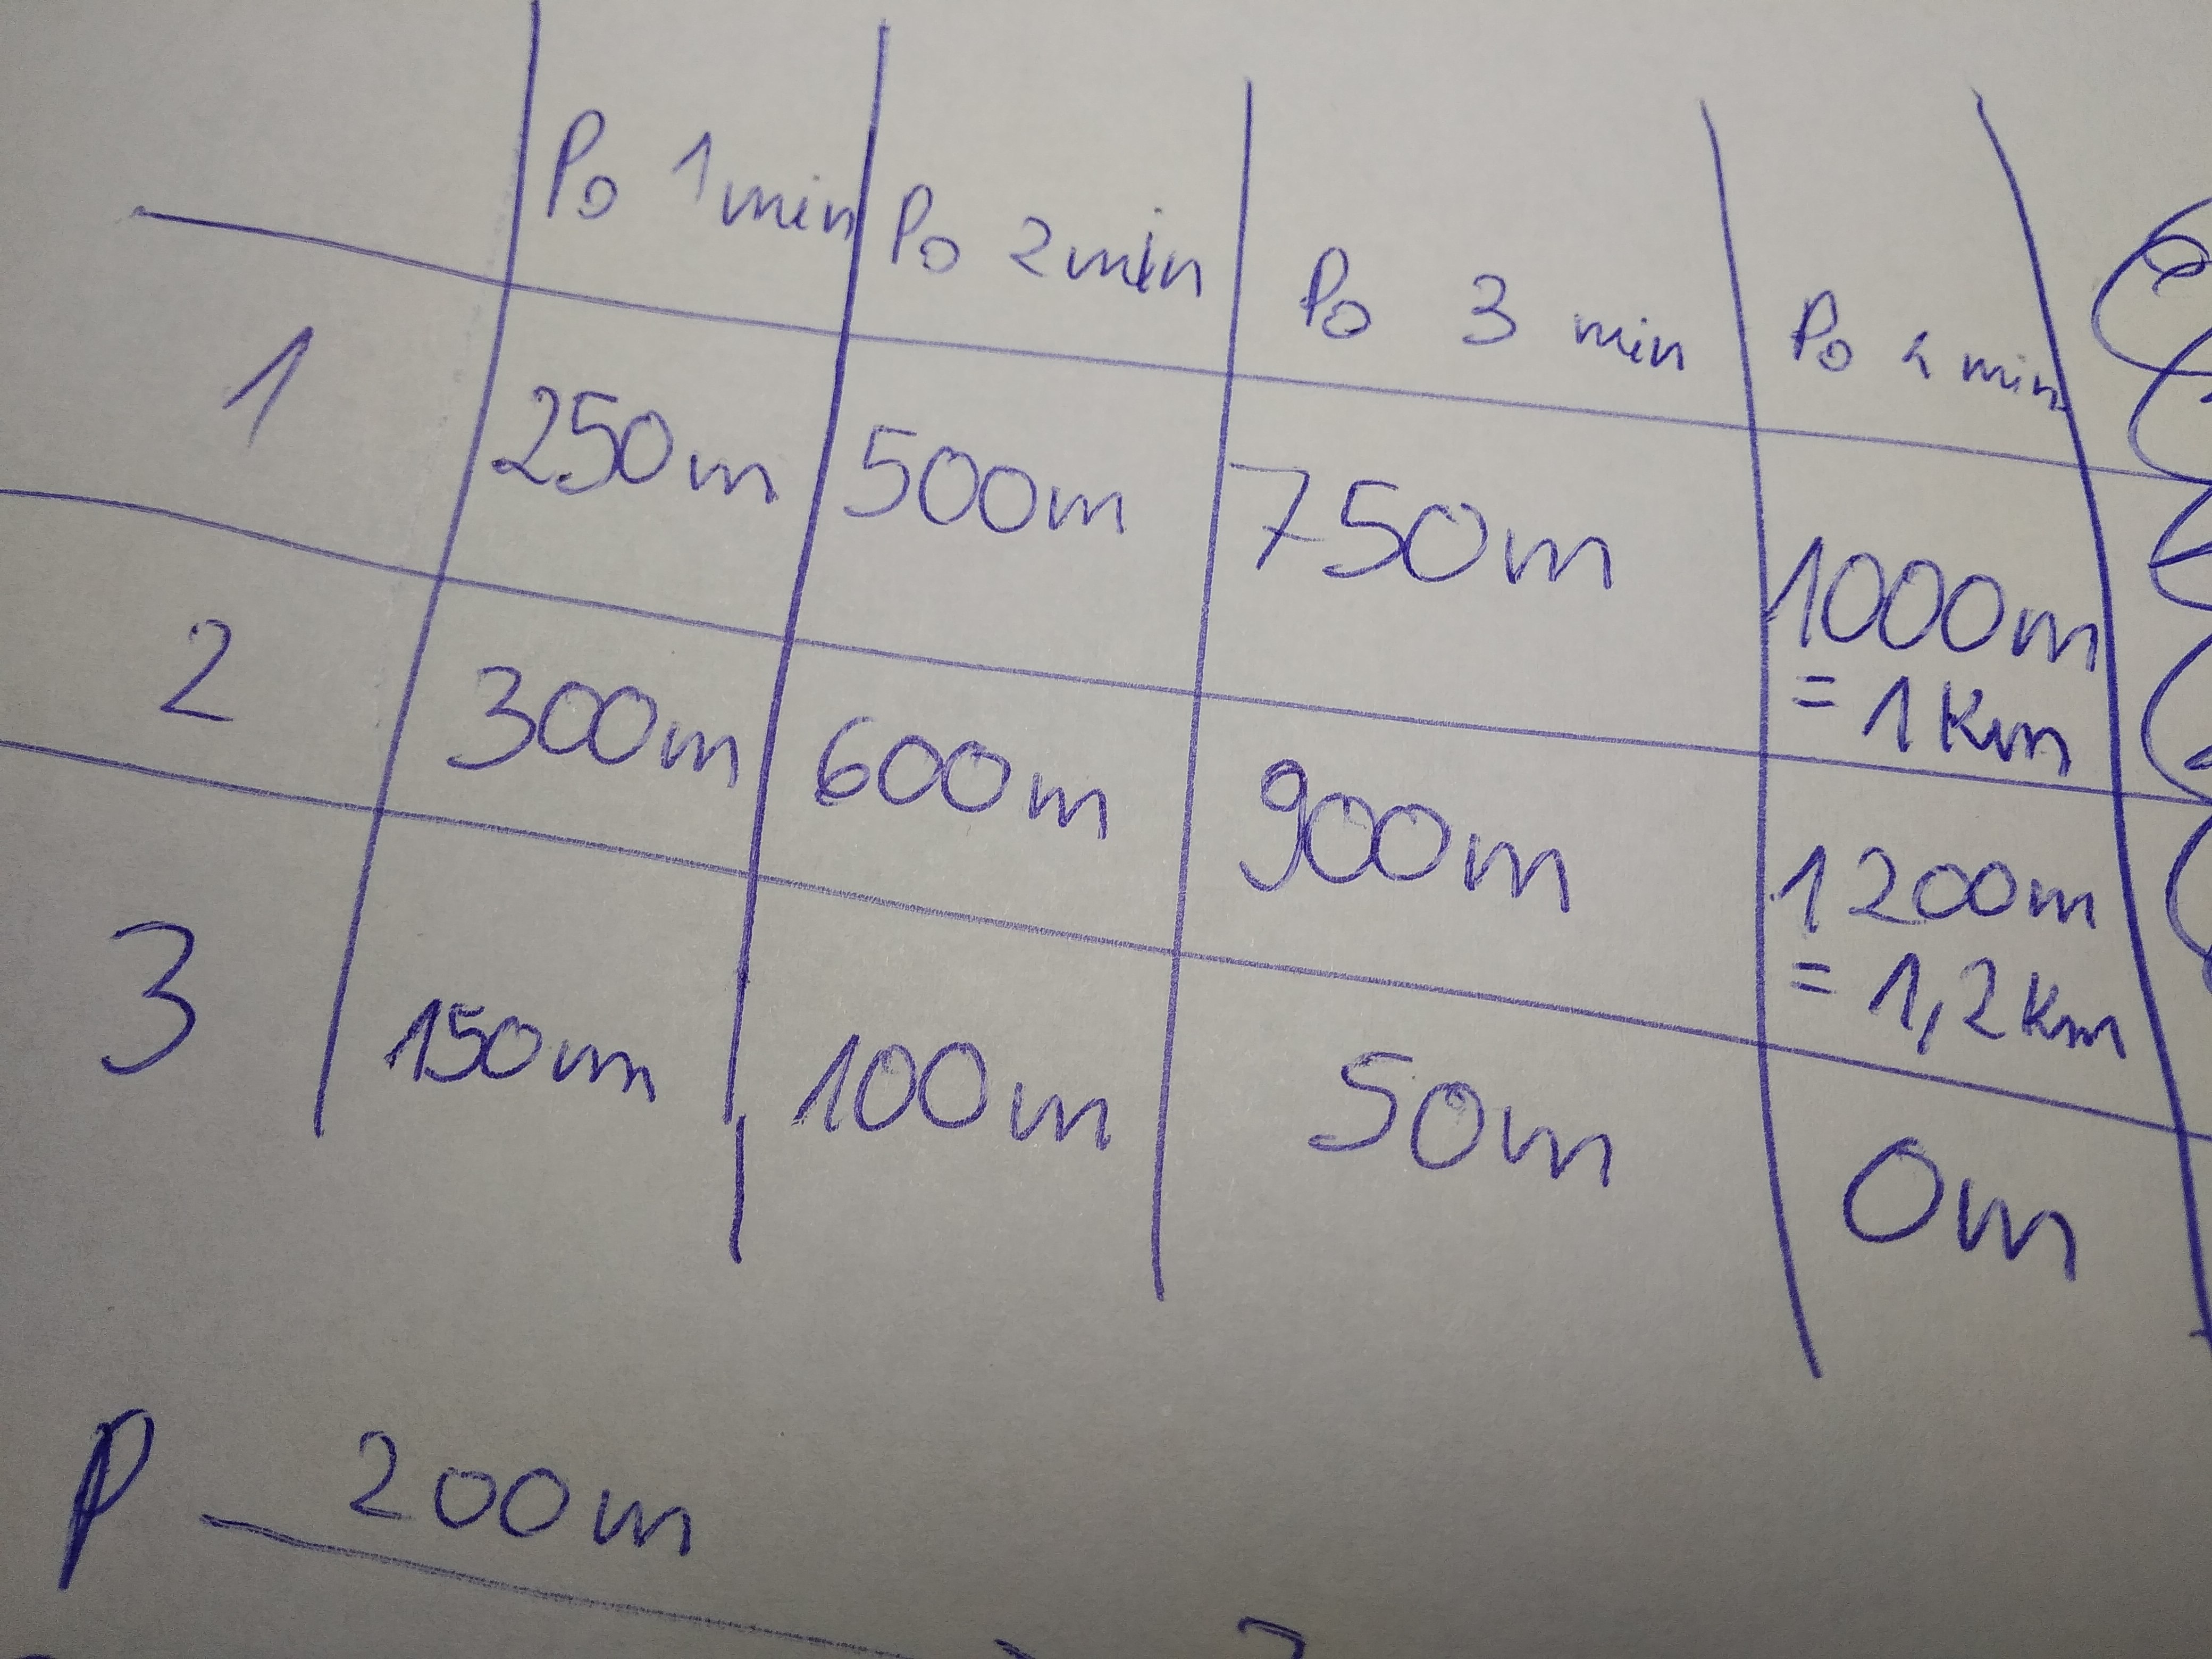 Po 1 min Po 2 min Po 3 min Po 4 min
1 250m 500m 750m 1000m
= 1 km
2 300m 600m 900m 1200m
= 1,2 km
3 150m 100m 50m 0m
P 200m